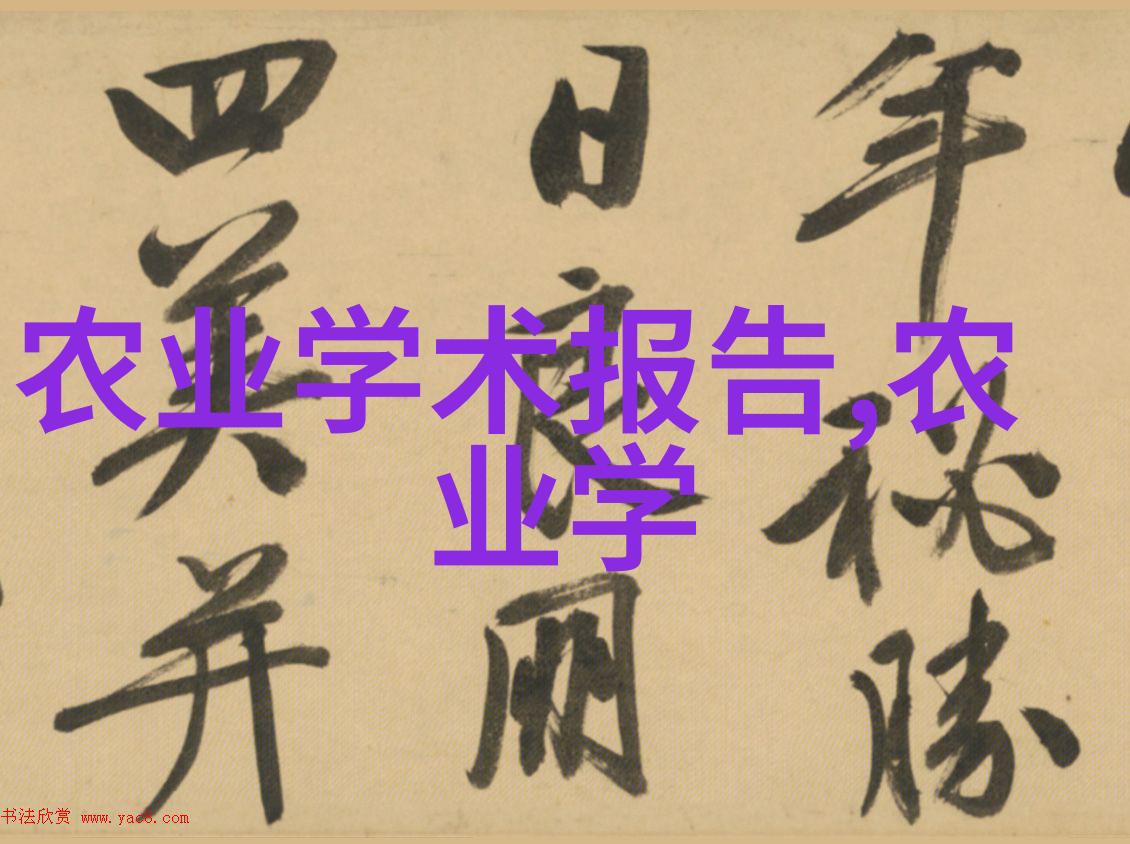 年勝
日良朋
四美并
农业学术报告,农
业学
书法欣赏 www.yac8.com